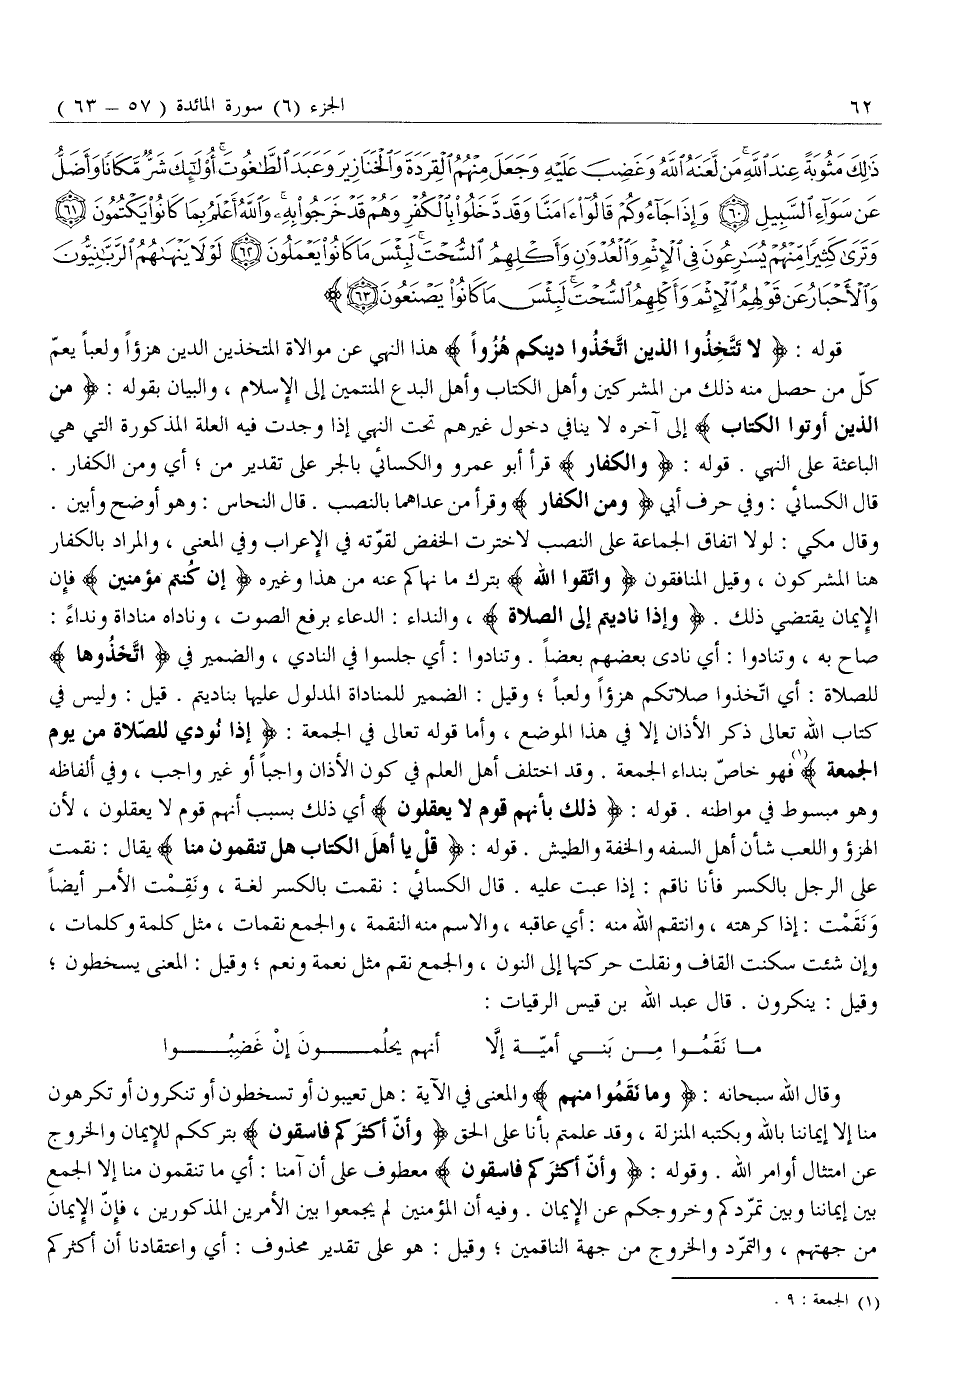 ٦٢ الجزء (٦) سورة المائدة ( ٥٧ – ٦٣ )
ذَٰلِكَ مَثُوبَةً عِندَ اللَّهِ ۚ مَن لَّعَنَهُ اللَّهُ وَغَضِبَ عَلَيْهِ وَجَعَلَ مِنْهُمُ الْقِرَدَةَ وَالْخَنَازِيرَ وَعَبَدَ الطَّاغُوتَ ۚ أُوْلَٰئِكَ شَرٌّ مَّكَانًا وَأَضَلُّ
عَن سَوَاءِ السَّبِيلِ ٦٠ وَإِذَا جَاءُوكُمْ قَالُوا ءَامَنَّا وَقَد دَّخَلُوا بِالْكُفْرِ وَهُمْ قَدْ خَرَجُوا بِهِ ۚ وَاللَّهُ أَعْلَمُ بِمَا كَانُوا يَكْتُمُونَ ٦١
وَتَرَىٰ كَثِيرًا مِّنْهُمْ يُسَارِعُونَ فِي الْإِثْمِ وَالْعُدْوَانِ وَأَكْلِهِمُ السُّحْتَ ۚ لَبِئْسَ مَا كَانُوا يَعْمَلُونَ ٦٢ لَوْلَا يَنْهَاهُمُ الرَّبَّانِيُّونَ
وَالْأَحْبَارُ عَن قَوْلِهِمُ الْإِثْمَ وَأَكْلِهِمُ السُّحْتَ ۚ لَبِئْسَ مَا كَانُوا يَصْنَعُونَ ٦٣ ﴾
قوله : ﴿ لا تَتَّخِذُوا الذين اتَّخَذُوا دينكم هُزُواً ﴾ هذا النهي عن موالاة المتخذين الدين هزؤاً ولعباً يعمّ
كلّ من حصل منه ذلك من المشركين وأهل الكتاب وأهل البدع المنتمين إلى الإسلام ، والبيان بقوله : ﴿ من
الذين أوتوا الكتاب ﴾ إلى آخره لا ينافي دخول غيرهم تحت النهي إذا وجدت فيه العلة المذكورة التي هي
الباعثة على النهي . قوله : ﴿ والكفار ﴾ قرأ أبو عمرو والكسائي بالجر على تقدير من ؛ أي ومن الكفار .
قال الكسائي : وفي حرف أبي ﴿ ومن الكفار ﴾ وقرأ من عداهما بالنصب . قال النحاس : وهو أوضح وأبين .
وقال مكي : لولا اتفاق الجماعة على النصب لاخترت الخفض لقوّته في الإعراب وفي المعنى ، والمراد بالكفار
هنا المشركون ، وقيل المنافقون ﴿ واتّقوا الله ﴾ بترك ما نهاكم عنه من هذا وغيره ﴿ إن كُنتم مؤمنين ﴾ فإن
الإيمان يقتضي ذلك . ﴿ وإذا ناديتم إلى الصلاة ﴾ ، والنداء : الدعاء برفع الصوت ، وناداه مناداة ونداءً :
صاح به ، وتنادوا : أي نادى بعضهم بعضاً . وتنادوا : أي جلسوا في النادي ، والضمير في ﴿ اتَّخَذُوها ﴾
للصلاة : أي اتّخذوا صلاتكم هزؤاً ولعباً ؛ وقيل : الضمير للمناداة المدلول عليها بناديتم . قيل : وليس في
كتاب الله تعالى ذكر الأذان إلا في هذا الموضع ، وأما قوله تعالى في الجمعة : ﴿ إذا نُودي للصّلاة من يوم
الجمعة ﴾(١) فهو خاصّ بنداء الجمعة . وقد اختلف أهل العلم في كون الأذان واجباً أو غير واجب ، وفي ألفاظه
وهو مبسوط في مواطنه . قوله : ﴿ ذلك بأنهم قوم لا يعقلون ﴾ أي ذلك بسبب أنهم قوم لا يعقلون ، لأن
الهزؤ واللعب شأن أهل السفه والخفة والطيش . قوله : ﴿ قلْ يا أهلَ الكتاب هل تنقمون منا ﴾ يقال : نقمت
على الرجل بالكسر فأنا ناقم : إذا عبت عليه . قال الكسائي : نقمت بالكسر لغة ، ونَقِمْت الأمر أيضاً
وَنَقَمْت : إذا كرهته ، وانتقم الله منه : أي عاقبه ، والاسم منه النقمة ، والجمع نقمات ، مثل كلمة وكلمات ،
وإن شئت سكنت القاف ونقلت حركتها إلى النون ، والجمع نقم مثل نعمة ونعم ؛ وقيل : المعنى يسخطون ؛
وقيل : ينكرون . قال عبد الله بن قيس الرقيات :
مـا نَقَمُـوا مِـن بَنـي أميّـة إلَّا أنهم يحلُمــونَ إنْ غَضِبُــوا
وقال الله سبحانه : ﴿ وما نَقَمُوا منهم ﴾ والمعنى في الآية : هل تعيبون أو تسخطون أو تنكرون أو تكرهون
منا إلا إيماننا بالله وبكتبه المنزلة ، وقد علمتم بأنا على الحق ﴿ وأنّ أكثرَكم فاسقون ﴾ بترككم للإيمان والخروج
عن امتثال أوامر الله . وقوله : ﴿ وأنّ أكثرَكم فاسقون ﴾ معطوف على أن آمنا : أي ما تنقمون منا إلا الجمع
بين إيماننا وبين تمرّدكم وخروجكم عن الإيمان . وفيه أن المؤمنين لم يجمعوا بين الأمرين المذكورين ، فإنّ الإيمانَ
من جهتهم ، والتمرّد والخروج من جهة الناقمين ؛ وقيل : هو على تقدير محذوف : أي واعتقادنا أن أكثركم
(١) الجمعة : ٩ .